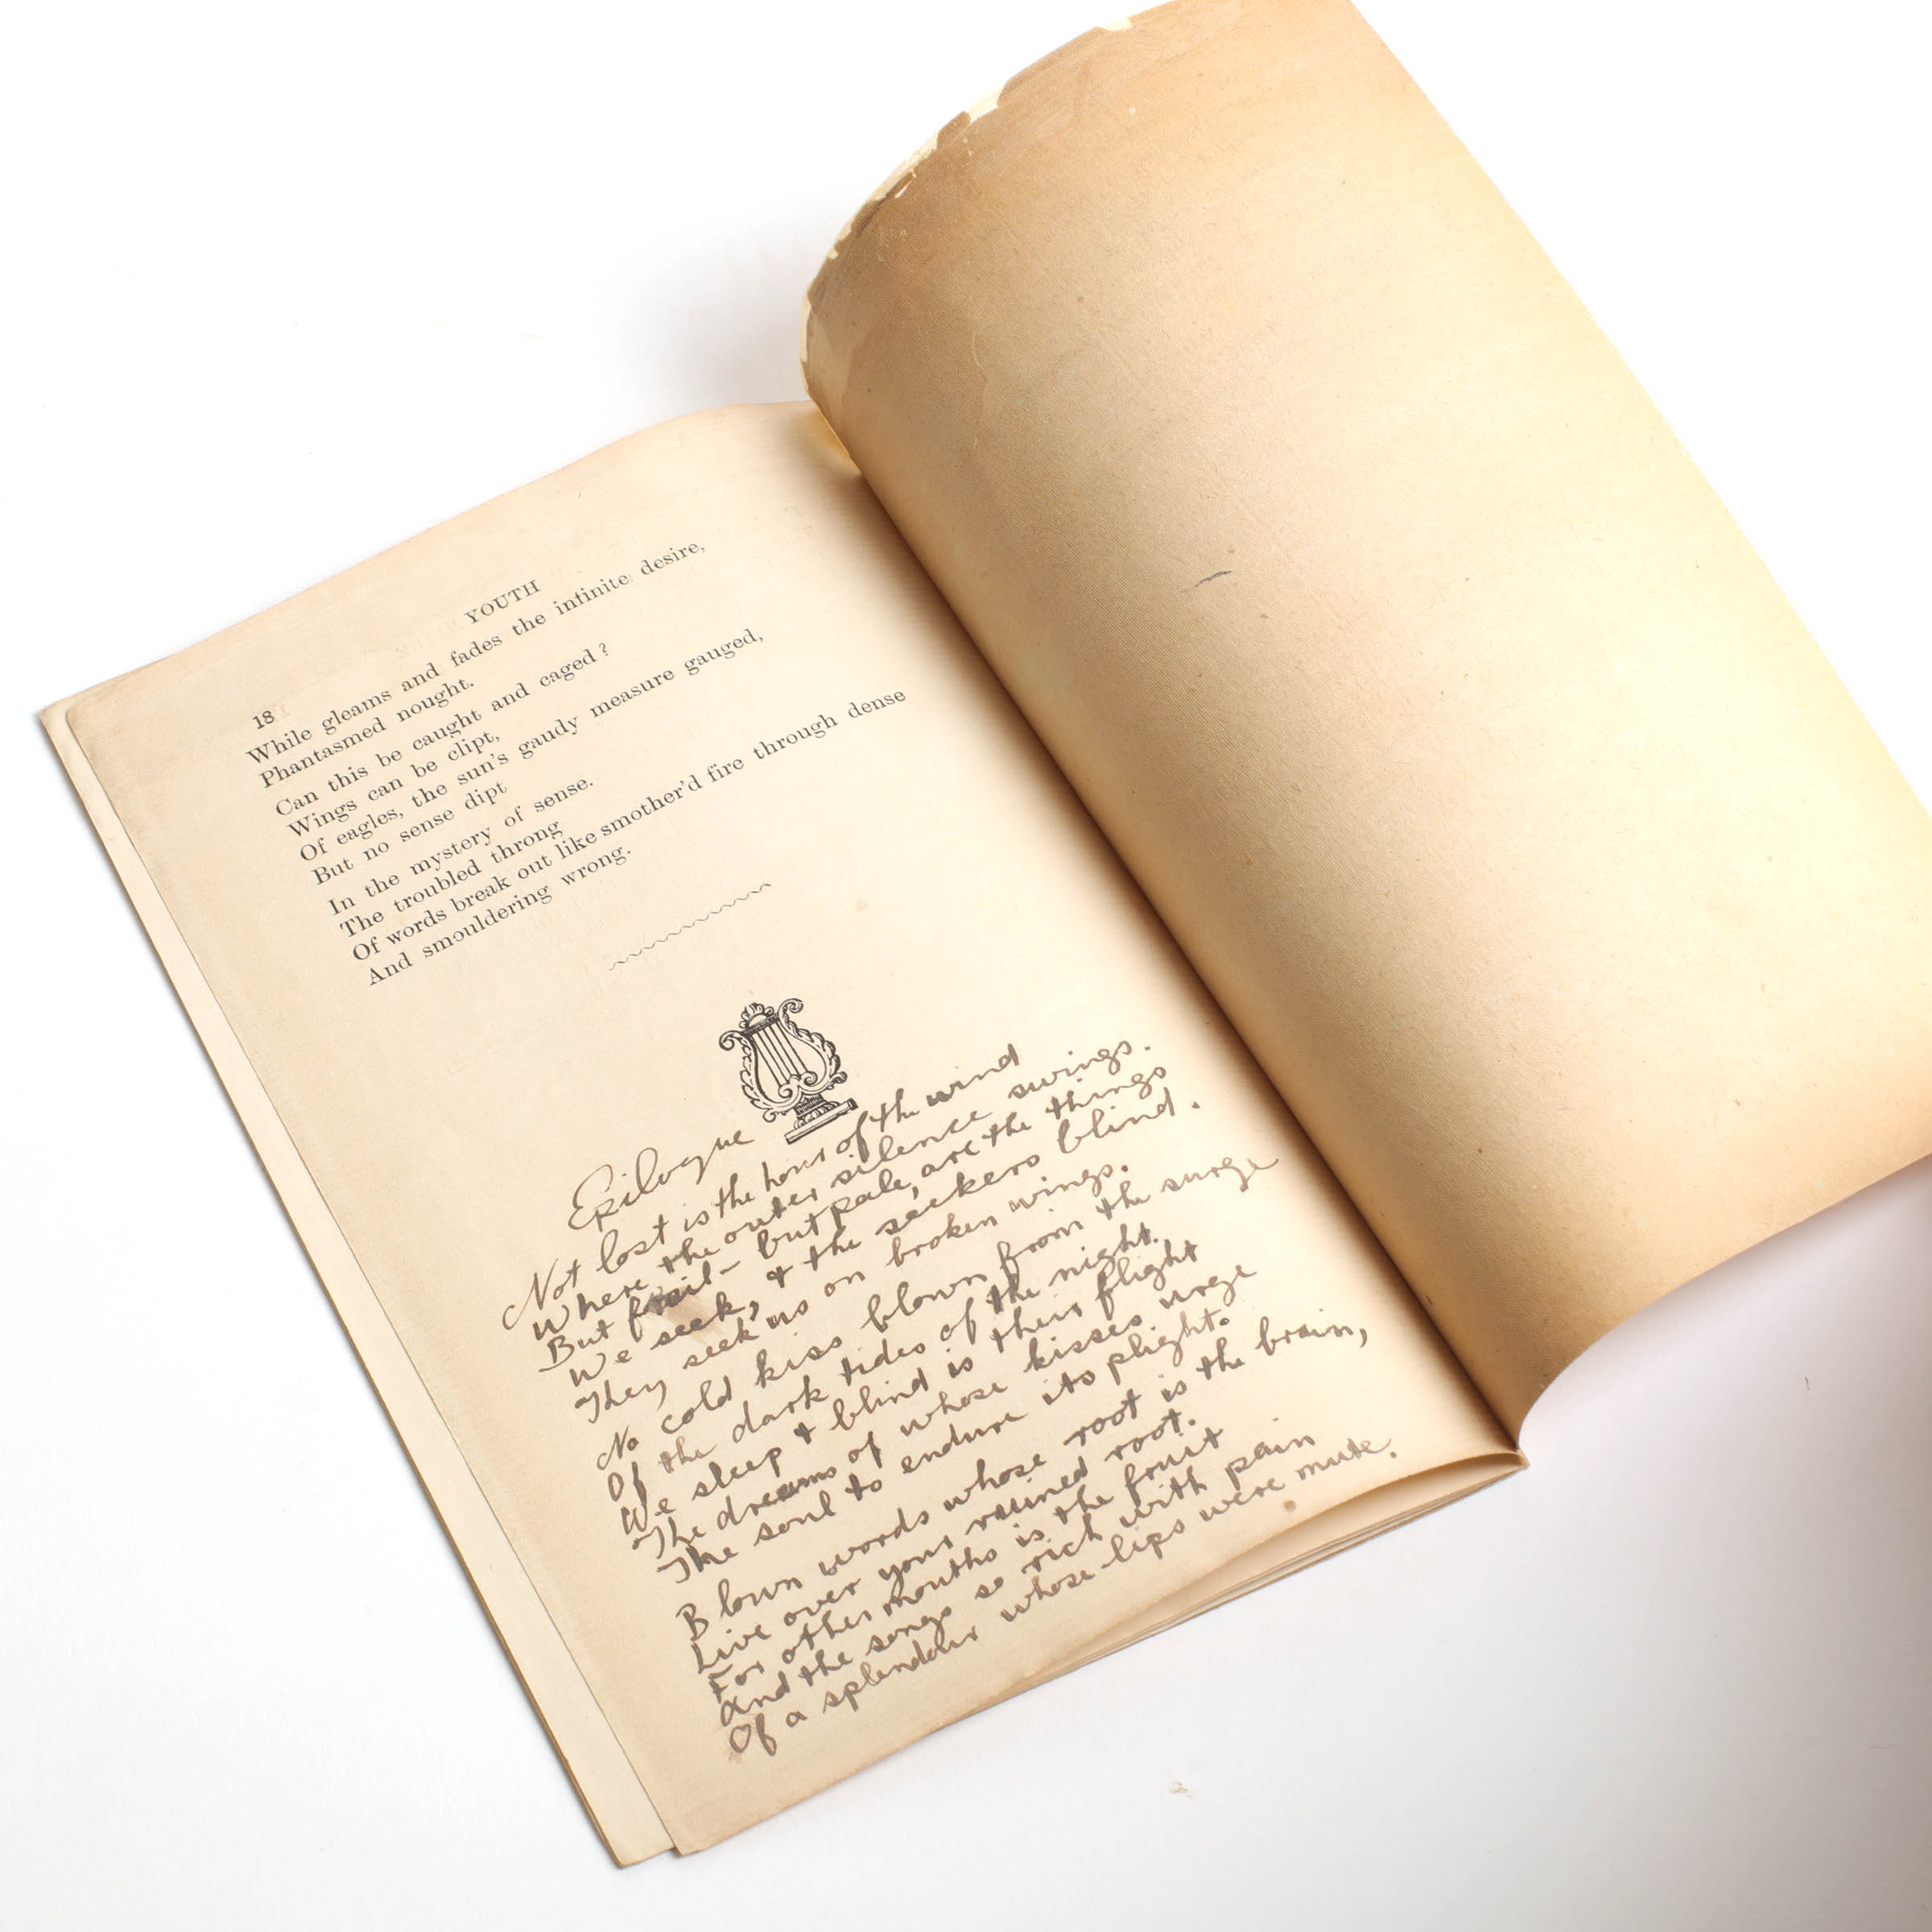 18
YOUTH
While gleams and fades the infinite desire,
Phantasmed nought.
Can this be caught and caged?
Wings can be clipt,
Of eagles, the sun's gaudy measure gauged,
But no sense dipt
In the mystery of sense.
The troubled throng
Of words break out like smother'd fire through dense
And smouldering wrong.
Epilogue
Not lost is the hour of the wind
Where the outer silence swings.
But frail - but pale, are the things
We seek, & the seekers blind.
They seek us on broken wings.
No cold kiss blown from the surge
Of the dark tides of the night.
We sleep & blind is their flight
The dreams of whose kisses urge
The soul to endure its plight.
Blown words whose root is the brain,
Live over your ruined root.
For other mouths is the fruit
And the songs so rich with pain
Of a splendour whose lips were mute.